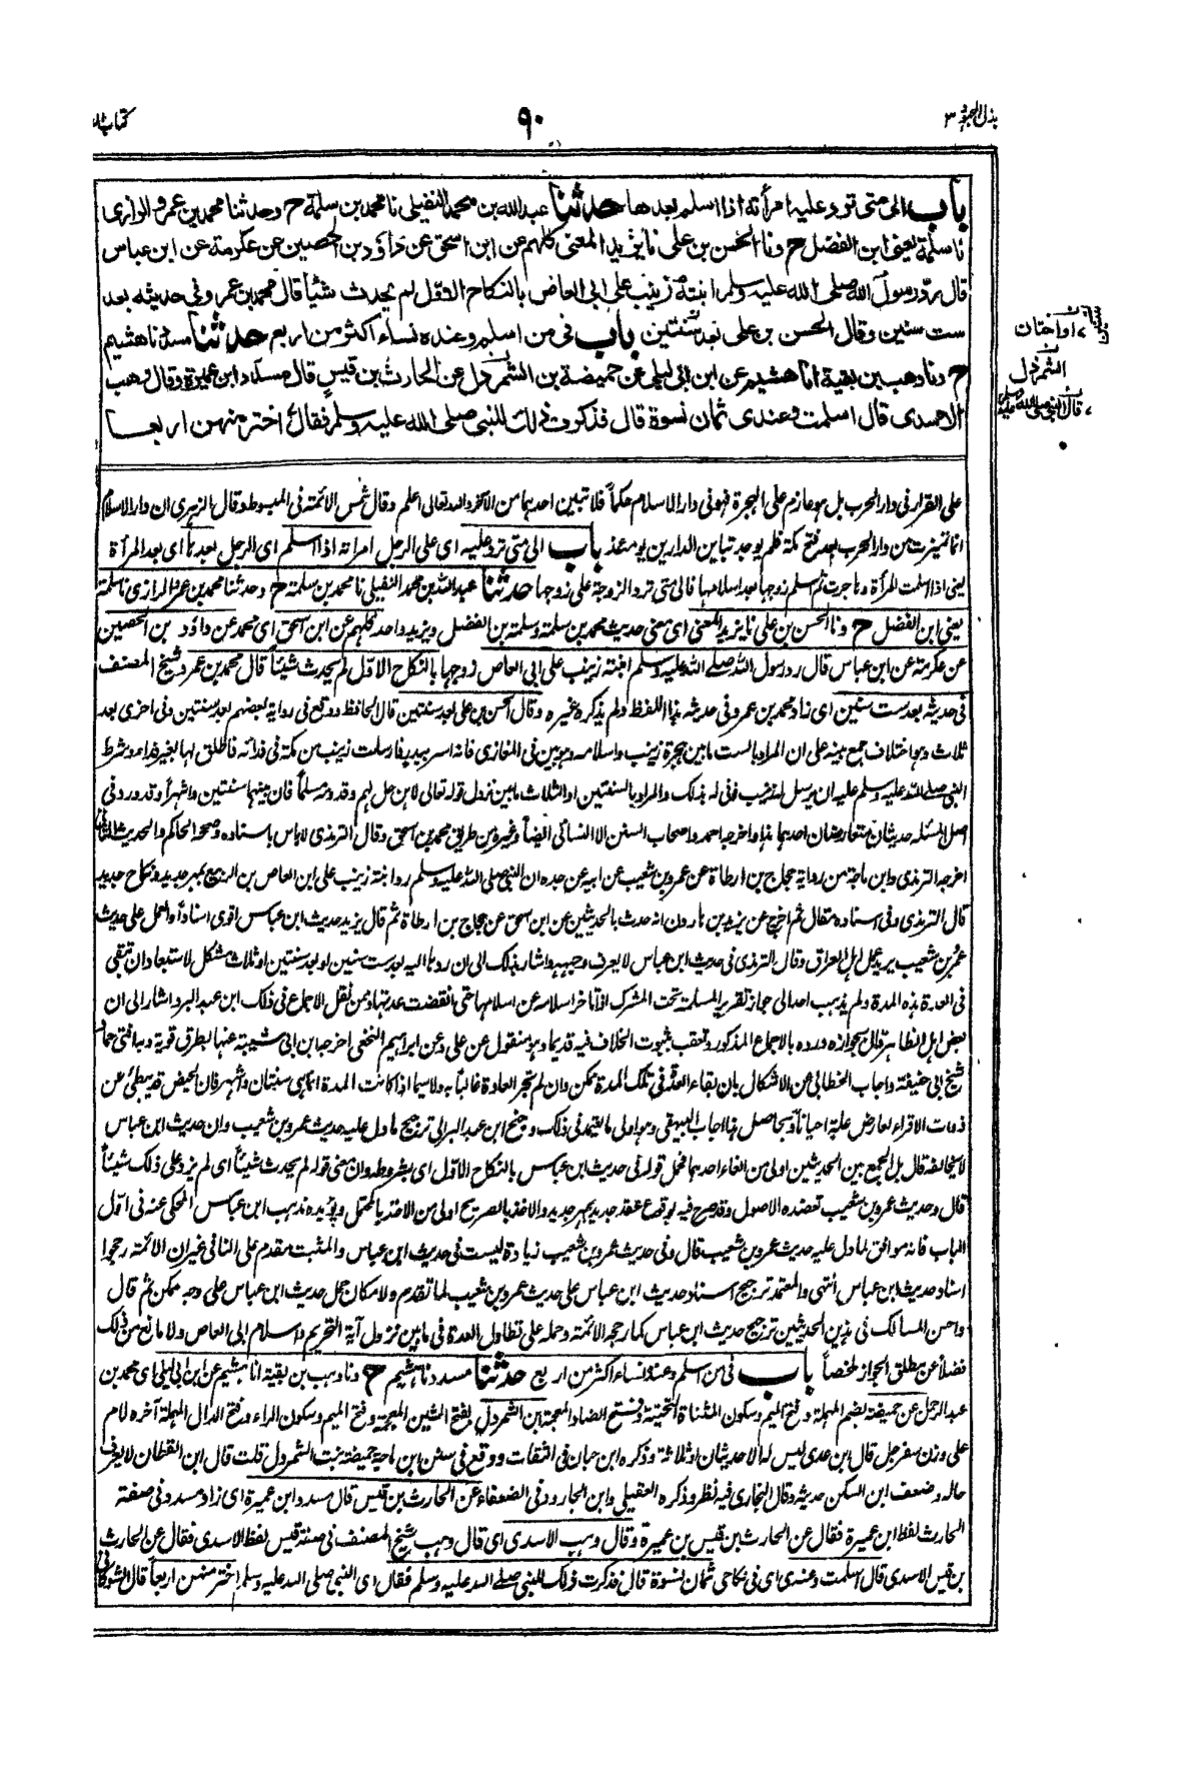 بذل المجهود ٣
٩٠
كتاب
باب الى متى ترد عليه امرأته اذا اسلم بعدها حدثنا عبدالله بن محمد النفيلى نا محمد بن سلمة ح وحدثنا محمد بن عمرو الرازى
نا سلمة يعنى ابن الفضل ح ونا الحسن بن على نا يزيد المعنى كلهم عن ابن اسحق عن داؤد بن الحصين عن عكرمة عن ابن عباس
قال رد رسول الله صلى الله عليه وسلم ابنته زينب على ابى العاص بالنكاح الاول لم يحدث شيئا قال محمد بن عمرو فى حديثه بعد
ست سنين وقال الحسن بن على بعد سنتين باب فى من اسلم وعنده نساء اكثر من اربع حدثنا مسدد نا هشيم
ح ونا وهب بن بقية انا هشيم عن ابن ابى ليلى عن حميضة بن الشمردل عن الحارث بن قيس قال مسدد ابن عميرة وقال وهب
الاسدى قال اسلمت وعندى ثمان نسوة قال فذكرت ذلك للنبى صلى الله عليه وسلم فقال اختر منهن اربعا
او اختان
الشمرذل
قال النبى صلى الله عليه وسلم
على القرار فى دار الحرب بل هو عازم على الهجرة فهو فى دار الاسلام حكماً فلا تبين احدهما من الآخر والله تعالى اعلم وقال شمس الائمة فى المبسوط وقال الزهرى ان دار الاسلام
انما تميزت من دار الحرب بعد فتح مكة فلم يوجد تباين الدارين يومئذ باب الى متى ترد عليه اى على الرجل امرأته اذا اسلم اى الرجل بعدها اى بعد المرأة
يعنى اذا اسلمت المرأة وهاجرت ثم اسلم زوجها بعد اسلامها فالى متى ترد الزوجة على زوجها حدثنا عبدالله بن محمد النفيلى نا محمد بن سلمة ح وحدثنا محمد بن عمرو الرازى نا سلمة
يعنى ابن الفضل ح ونا الحسن بن على نا يزيد المعنى اى معنى حديث محمد بن سلمة وسلمة بن الفضل ويزيد واحد كلهم عن ابن اسحق اى محمد عن داؤد بن الحصين
عن عكرمة عن ابن عباس قال رد رسول الله صلى الله عليه وسلم ابنته زينب على ابى العاص زوجها بالنكاح الاول لم يحدث شيئاً قال محمد بن عمرو شيخ المصنف
فى حديثه بعد ست سنين اى زاد محمد بن عمرو فى حديثه هذا اللفظ ولم يذكره غيره وقال الحسن بن على بعد سنتين قال الحافظ ووقع فى رواية بعضهم بعد سنتين وفى اخرى بعد
ثلاث وهو اختلاف جمع بينه على ان المراد بالست ما بين هجرة زينب واسلامه وهو بين فى المغازى فانه اسر ببدر فارسلت زينب من مكة فى فدائه فاطلق لها بغير فداء وشرط
النبى صلى الله عليه وسلم عليه ان يرسل له زينب فوفى له بذلك والمراد بالسنتين او الثلاث ما بين نزول قوله تعالى لا هن حل لهم وقدومه مسلماً فان بينهما سنتين واشهراً وقد ورد فى
اصل المسئلة حديثان متعارضان احدهما هذا واخرجه احمد واصحاب السنن الا النسائى ايضاً وغيره من طريق محمد بن اسحق وقال الترمذى لا بأس باسناده وصححه الحاكم والحديث الثانى
اخرجه الترمذى وابن ماجة من رواية حجاج بن ارطاة عن عمرو بن شعيب عن ابيه عن جده ان النبى صلى الله عليه وسلم رد ابنته زينب على ابى العاص بن الربيع بمهر جديد ونكاح جديد
قال الترمذى وفى اسناده مقال ثم اخرج عن يزيد بن هارون انه حدث بالحديثين عن ابن اسحق عن حجاج بن ارطاة ثم قال يزيد حديث ابن عباس اقوى اسناداً والعمل على حديث
عمرو بن شعيب يريد عمل اهل العراق وقال الترمذى فى حديث ابن عباس لا يعرف وجهه واشار بذلك الى ان ردها اليه بعد ست سنين او بعد سنتين او ثلاث مشكل لاستبعاد ان تبقى
فى العدة هذه المدة ولم يذهب احد الى جواز تقرير المسلمة تحت المشرك اذا تأخر اسلامه عن اسلامها حتى انقضت عدتها وممن نقل الاجماع فى ذلك ابن عبد البر واشار الى ان
بعض اهل الظاهر قال بجوازه ورده بالاجماع المذكور وتعقب بثبوت الخلاف فيه قديما وهو منقول عن على وعن ابراهيم النخعى اخرجه ابن ابى شيبة عنهما بطرق قوية وبه افتى حماد
شيخ ابى حنيفة واجاب الخطابى عن الاشكال بان بقاء العدة فى تلك المدة ممكن وان لم تجر العادة غالباً به ولا سيما اذا كانت المدة انما هى سنتان واشهر فان الحيض قد يبطئ عن
ذوات الاقراء لعارض علة احياناً وبحاصل هذا اجاب البيهقى وهو اولى ما يعتمد فى ذلك وجنح ابن عبد البر الى ترجيح ما دل عليه حديث عمرو بن شعيب وان حديث ابن عباس
لا يخالفه قال بل الجمع بين الحديثين اولى من الغاء احدهما فحمل قوله فى حديث ابن عباس بالنكاح الاول اى بشروطه وان معنى قوله لم يحدث شيئاً اى لم يزد على ذلك شيئاً
قال وحديث عمرو بن شعيب تعضده الاصول وقد صرح فيه بوقوع عقد جديد بمهر جديد والاخذ بالصريح اولى من الاخذ بالمحتمل ويؤيده مذهب ابن عباس المحكى عنه فى اول
الباب فانه موافق لما دل عليه حديث عمرو بن شعيب قال وفى حديث عمرو بن شعيب زيادة ليست فى حديث ابن عباس والمثبت مقدم على النافى غير ان الائمة رجحوا
اسناد حديث ابن عباس انتهى والمعتمد ترجيح اسناد حديث ابن عباس على حديث عمرو بن شعيب لما تقدم ولامكان حمل حديث ابن عباس على وجه ممكن ثم قال
واحسن المسالك فى هذين الحديثين ترجيح حديث ابن عباس كما رجحه الائمة وحمله على تطاول العدة فى ما بين نزول آية التحريم واسلام ابى العاص ولا مانع من ذلك
فضلاً عن مطلق الجواز ملخصاً باب فى من اسلم وعنده نساء اكثر من اربع حدثنا مسدد نا هشيم ح ونا وهب بن بقية انا هشيم عن ابن ابى ليلى اى محمد بن
عبد الرحمن عن حميضة بضم المهملة وفتح الميم وسكون المثناة التحتية وفتح الضاد المعجمة ابن الشمردل بفتح الشين المعجمة وفتح الميم وسكون الراء وفتح الدال المهملة آخره لام
على وزن سفرجل قال ابن عدى ليس له الا حديثان او ثلاثة وذكره ابن حبان فى الثقات ووقع فى سنن ابن ماجة حميضة بنت الشمردل قلت قال ابن القطان لا يعرف
حاله وضعف ابن السكن حديثه وقال البخارى فيه نظر وذكره العقيلى وابن الجارود فى الضعفاء عن الحارث بن قيس قال مسدد ابن عميرة اى زاد مسدد فى صفة
الحارث لفظ ابن عميرة فقال عن الحارث بن قيس بن عميرة وقال وهب الاسدى اى قال وهب شيخ المصنف فى صفة قيس لفظ الاسدى فقال عن الحارث
بن قيس الاسدى قال اسلمت وعندى اى فى نكاحى ثمان نسوة قال فذكرت ذلك للنبى صلى الله عليه وسلم فقال اى النبى صلى الله عليه وسلم اختر منهن اربعاً قال الشوكانى